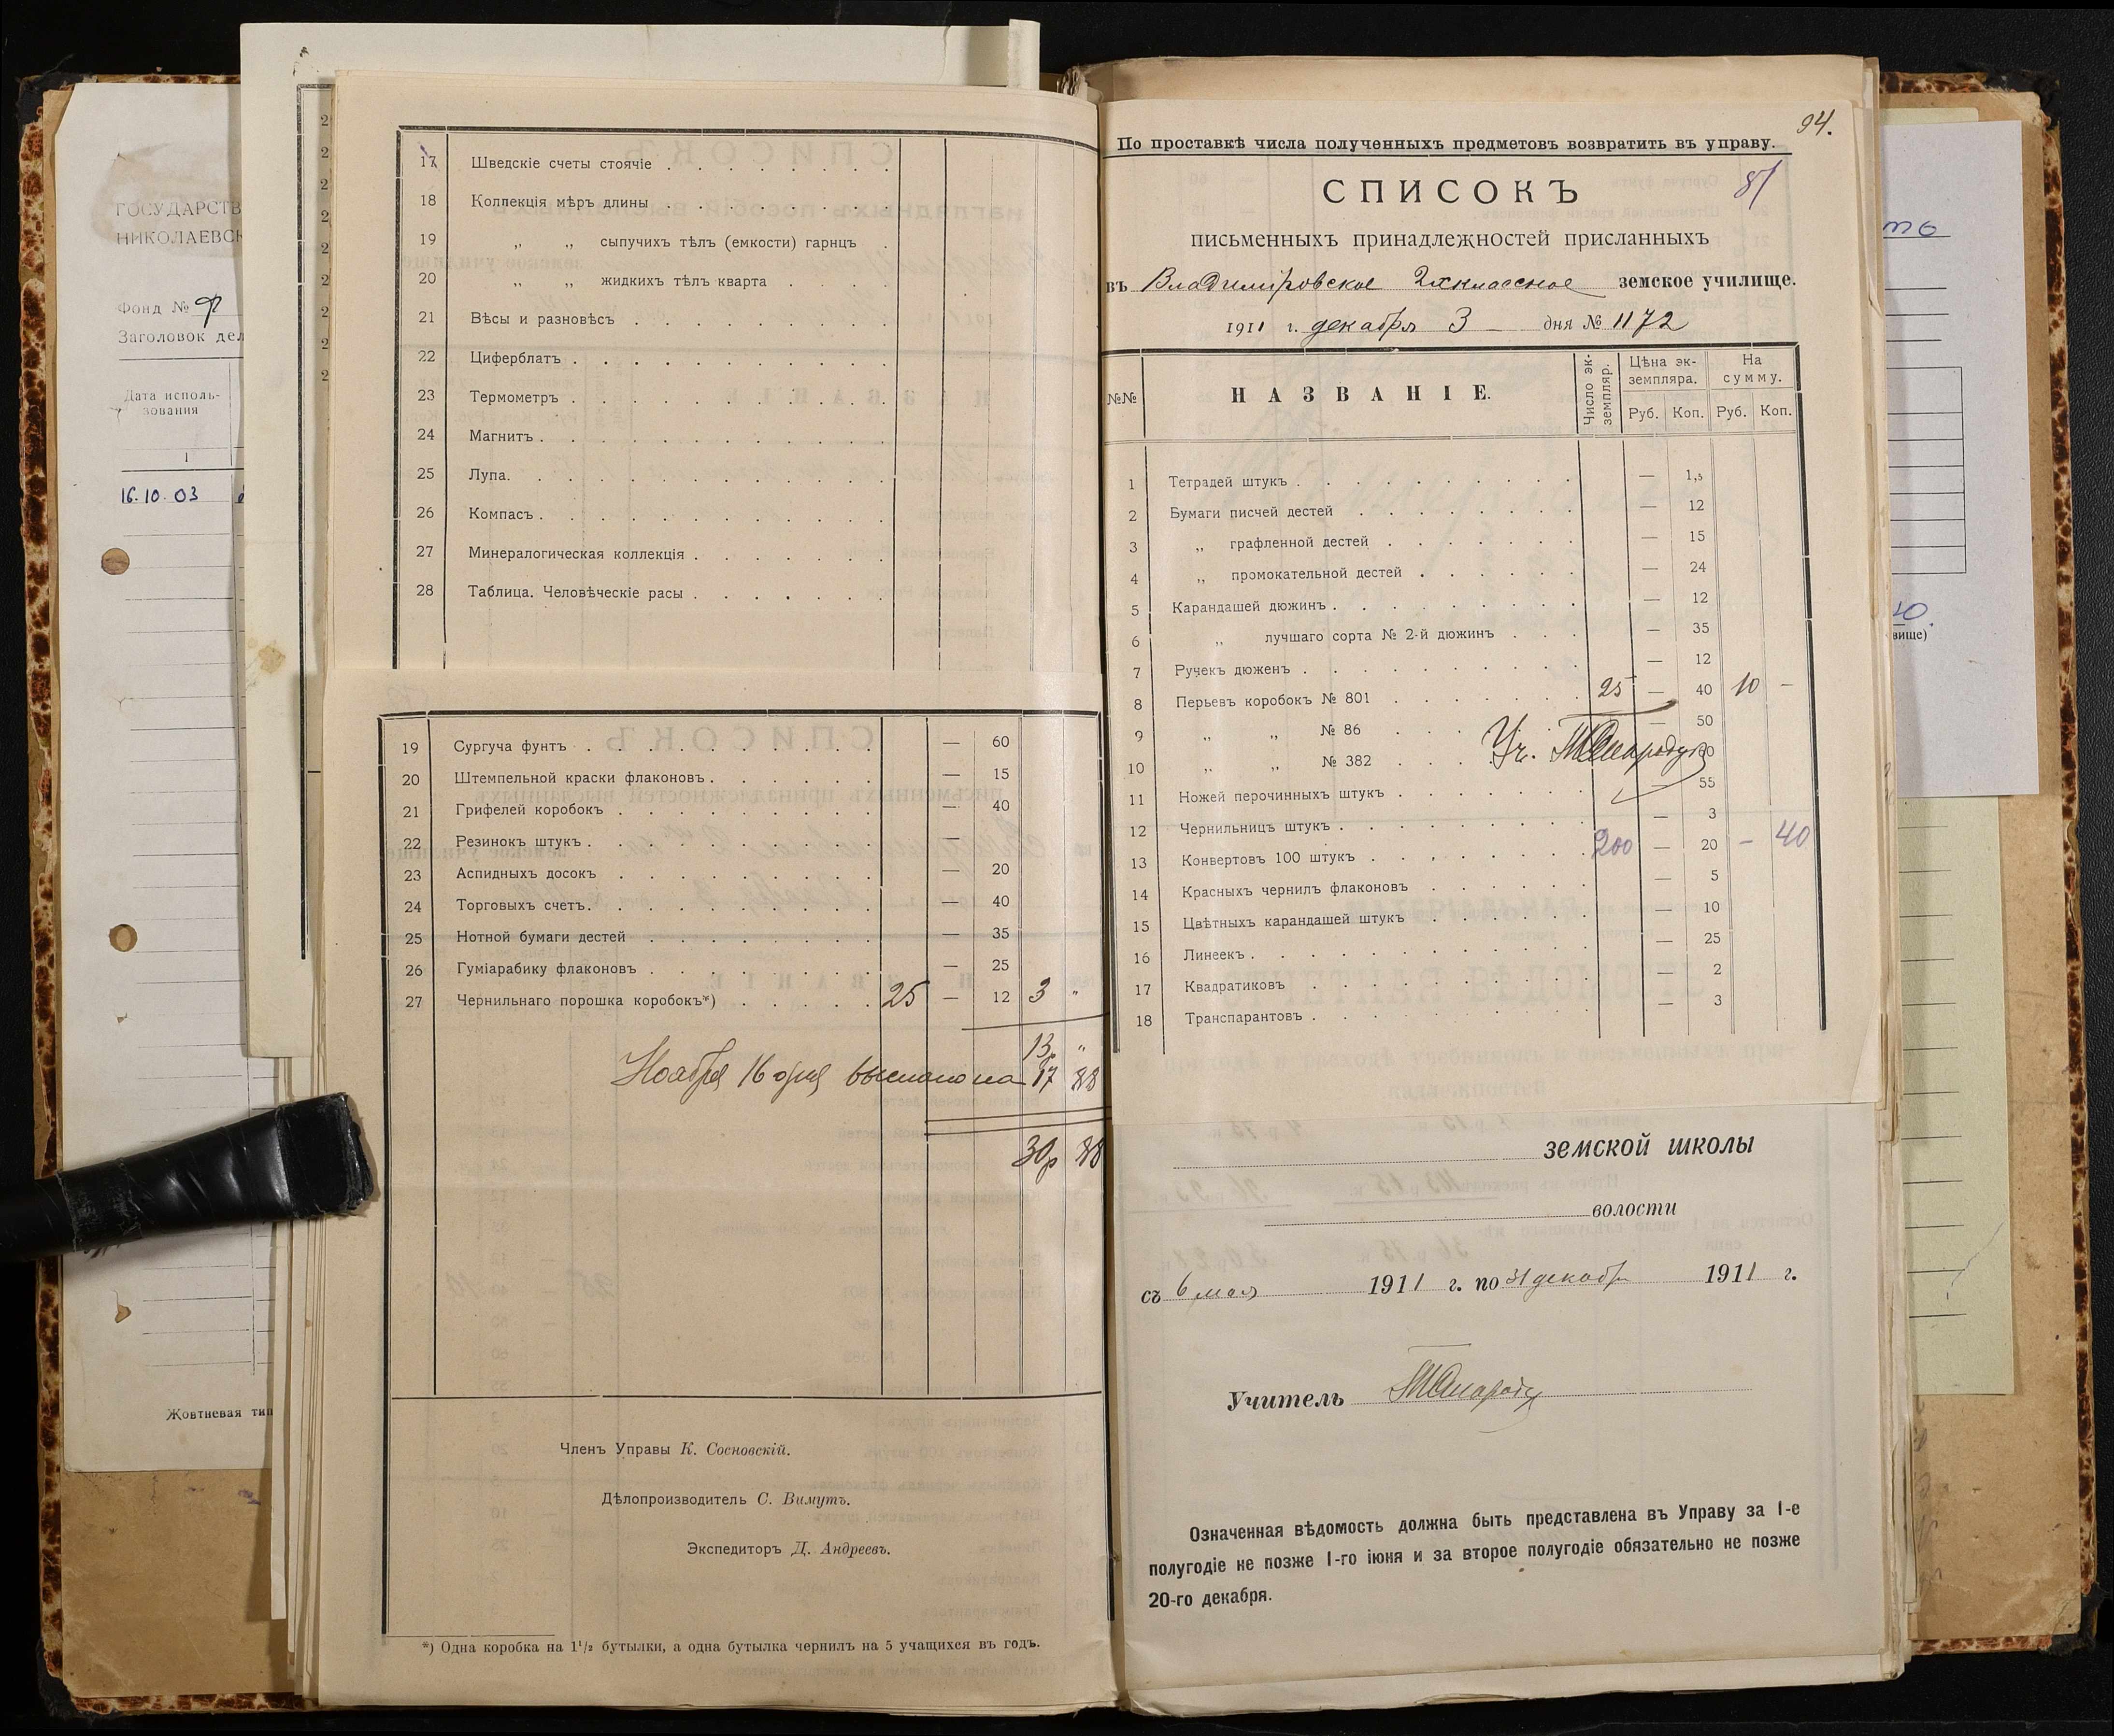 ГОСУДАРСТВ
НИКОЛАЕВСК
Фонд № Ф
Заголовок дел
Дата исполь-
зования
1
16.10.03
Жовтневая тип
17 Шведскіе счеты стоячіе
18 Коллекція мѣръ длины
19 „ „ сыпучихъ тѣлъ (емкости) гарнцъ
20 „ „ жидкихъ тѣлъ кварта
21 Вѣсы и разновѣсъ
22 Циферблатъ
23 Термометръ
24 Магнитъ
25 Лупа
26 Компасъ
27 Минералогическая коллекція
28 Таблица. Человѣческіе расы
19 Сургуча фунтъ — 60
20 Штемпельной краски флаконовъ — 15
21 Грифелей коробокъ — 40
22 Резинокъ штукъ —
23 Аспидныхъ досокъ — 20
24 Торговыхъ счетъ — 40
25 Нотной бумаги дестей — 35
26 Гуміарабику флаконовъ — 25
27 Чернильнаго порошка коробокъ*) 25 — 12 3 „
13р „
Ноября 16 дня выслано на 17 88
30р 88
Членъ Управы К. Сосновскій.
Дѣлопроизводитель С. Вимутъ.
Экспедиторъ Д. Андреевъ.
*) Одна коробка на 1 1/2 бутылки, а одна бутылка чернилъ на 5 учащихся въ годъ.
94.
По проставкѣ числа полученныхъ предметовъ возвратить въ управу.
СПИСОКЪ
письменныхъ принадлежностей присланныхъ
въ Владимировское 2хклассное земское училище.
1911 г. декабря 3 — дня № 1172
№№ НАЗВАНІЕ. Число эк-земпляр. Цѣна эк-земпляра. На сумму.
Руб. Коп. Руб. Коп.
1 Тетрадей штукъ — 1,5
2 Бумаги писчей дестей — 12
3 „ графленной дестей — 15
4 „ промокательной дестей — 24
5 Карандашей дюжинъ — 12
6 „ лучшаго сорта № 2-й дюжинъ — 35
7 Ручекъ дюженъ — 12
8 Перьевъ коробокъ № 801 25 — 40 10 —
9 „ „ № 86 — 50
10 „ „ № 382 Уч.
11 Ножей перочинныхъ штукъ — 55
12 Чернильницъ штукъ — 3
13 Конвертовъ 100 штукъ 200 — 20 — 40
14 Красныхъ чернилъ флаконовъ — 5
15 Цвѣтныхъ карандашей штукъ — 10
16 Линеекъ — 25
17 Квадратиковъ — 2
18 Транспарантовъ — 3
земской школы
волости
съ 6 мая 1911 г. по 31 декабр 1911 г.
Учитель
Означенная вѣдомость должна быть представлена въ Управу за 1-е
полугодіе не позже 1-го іюня и за второе полугодіе обязательно не позже
20-го декабря.
вище)